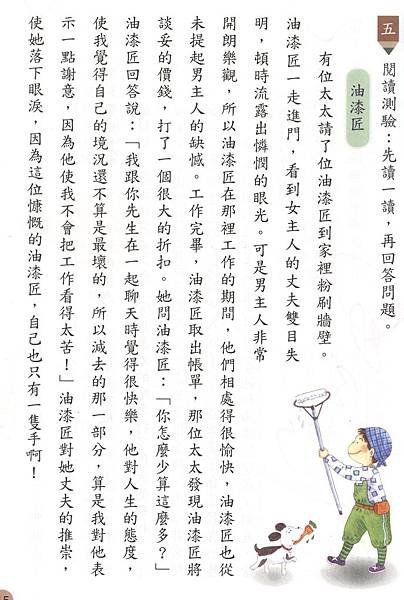 五
閱讀測驗：先讀一讀，再回答問題。
油漆匠
有位太太請了位油漆匠到家裡粉刷牆壁。
油漆匠一走進門，看到女主人的丈夫雙目失
明，頓時流露出憐憫的眼光。可是男主人非常
開朗樂觀，所以油漆匠在那裡工作的期間，他們相處得很愉快，油漆匠也從
未提起男主人的缺憾。工作完畢，油漆匠取出帳單，那位太太發現油漆匠將
談妥的價錢，打了一個很大的折扣。她問油漆匠：「你怎麼少算這麼多？」
油漆匠回答說：「我跟你先生在一起聊天時覺得很快樂，他對人生的態度，
使我覺得自己的境況還不算是最壞的，所以減去的那一部分，算是我對他表
示一點謝意，因為他使我不會把工作看得太苦！」油漆匠對她丈夫的推崇，
使她落下眼淚，因為這位慷慨的油漆匠，自己也只有一隻手啊！
5